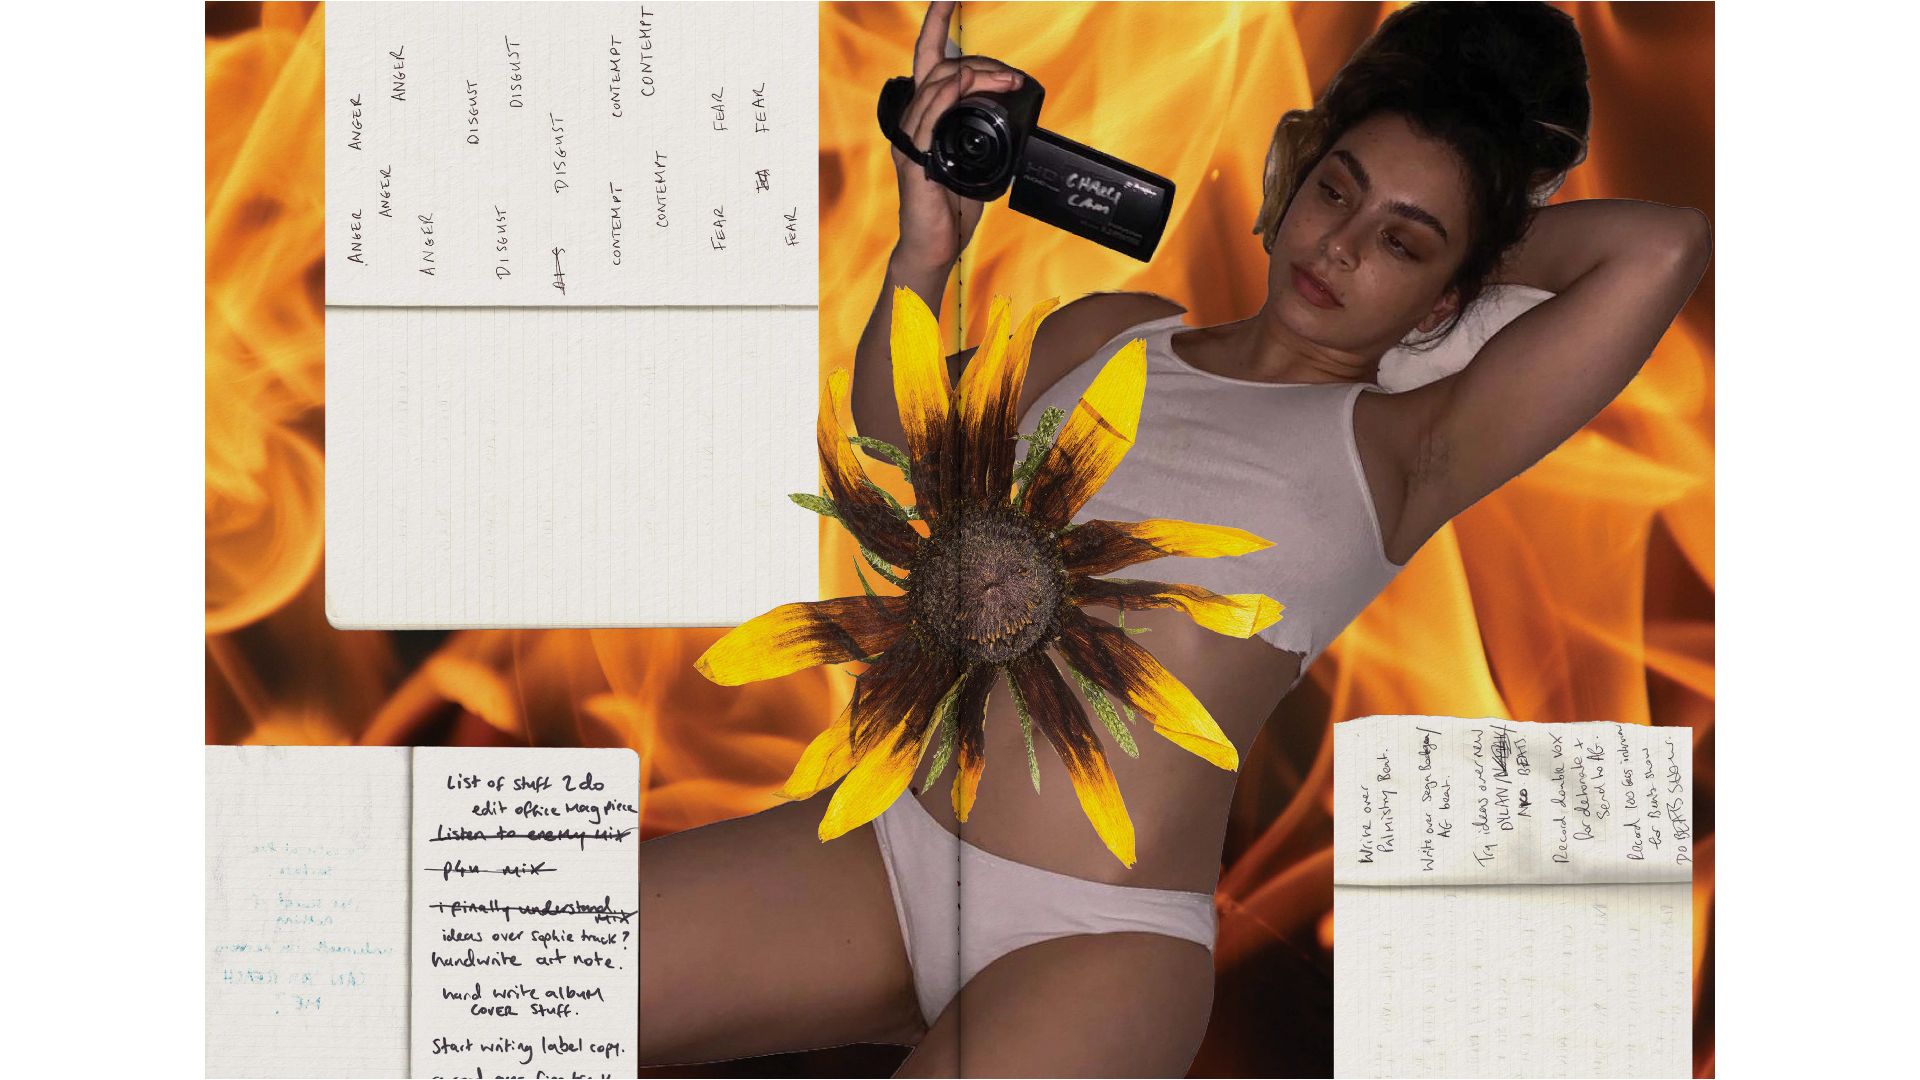 ANGER
ANGER
ANGER
ANGER
ANGER
DISGUST
DISGUST
DISGUST
DISGUST
DIS
CONTEMPT
CONTEMPT
CONTEMPT
CONTEMPT
FEAR
FEAR
FEAR
FEAR
CHARLI
CAM
List of stuff 2 do
edit office Mag piece
Listen to enemy Mix
p4u mix
i finally understand..
Mix
ideas over sophie track?
handwrite art note.
hand write album
COVER STUFF.
Start writing label copy.
Write over
Palmistry Beat.
Write over Sega Bodega/
AG beat.
Try ideas over new
DYLAN/
NKO BEATS.
Record double vox
for detonate +
Send to AG.
Record 100 Gecs interview
for Beats show
DO BEATS SHOW.